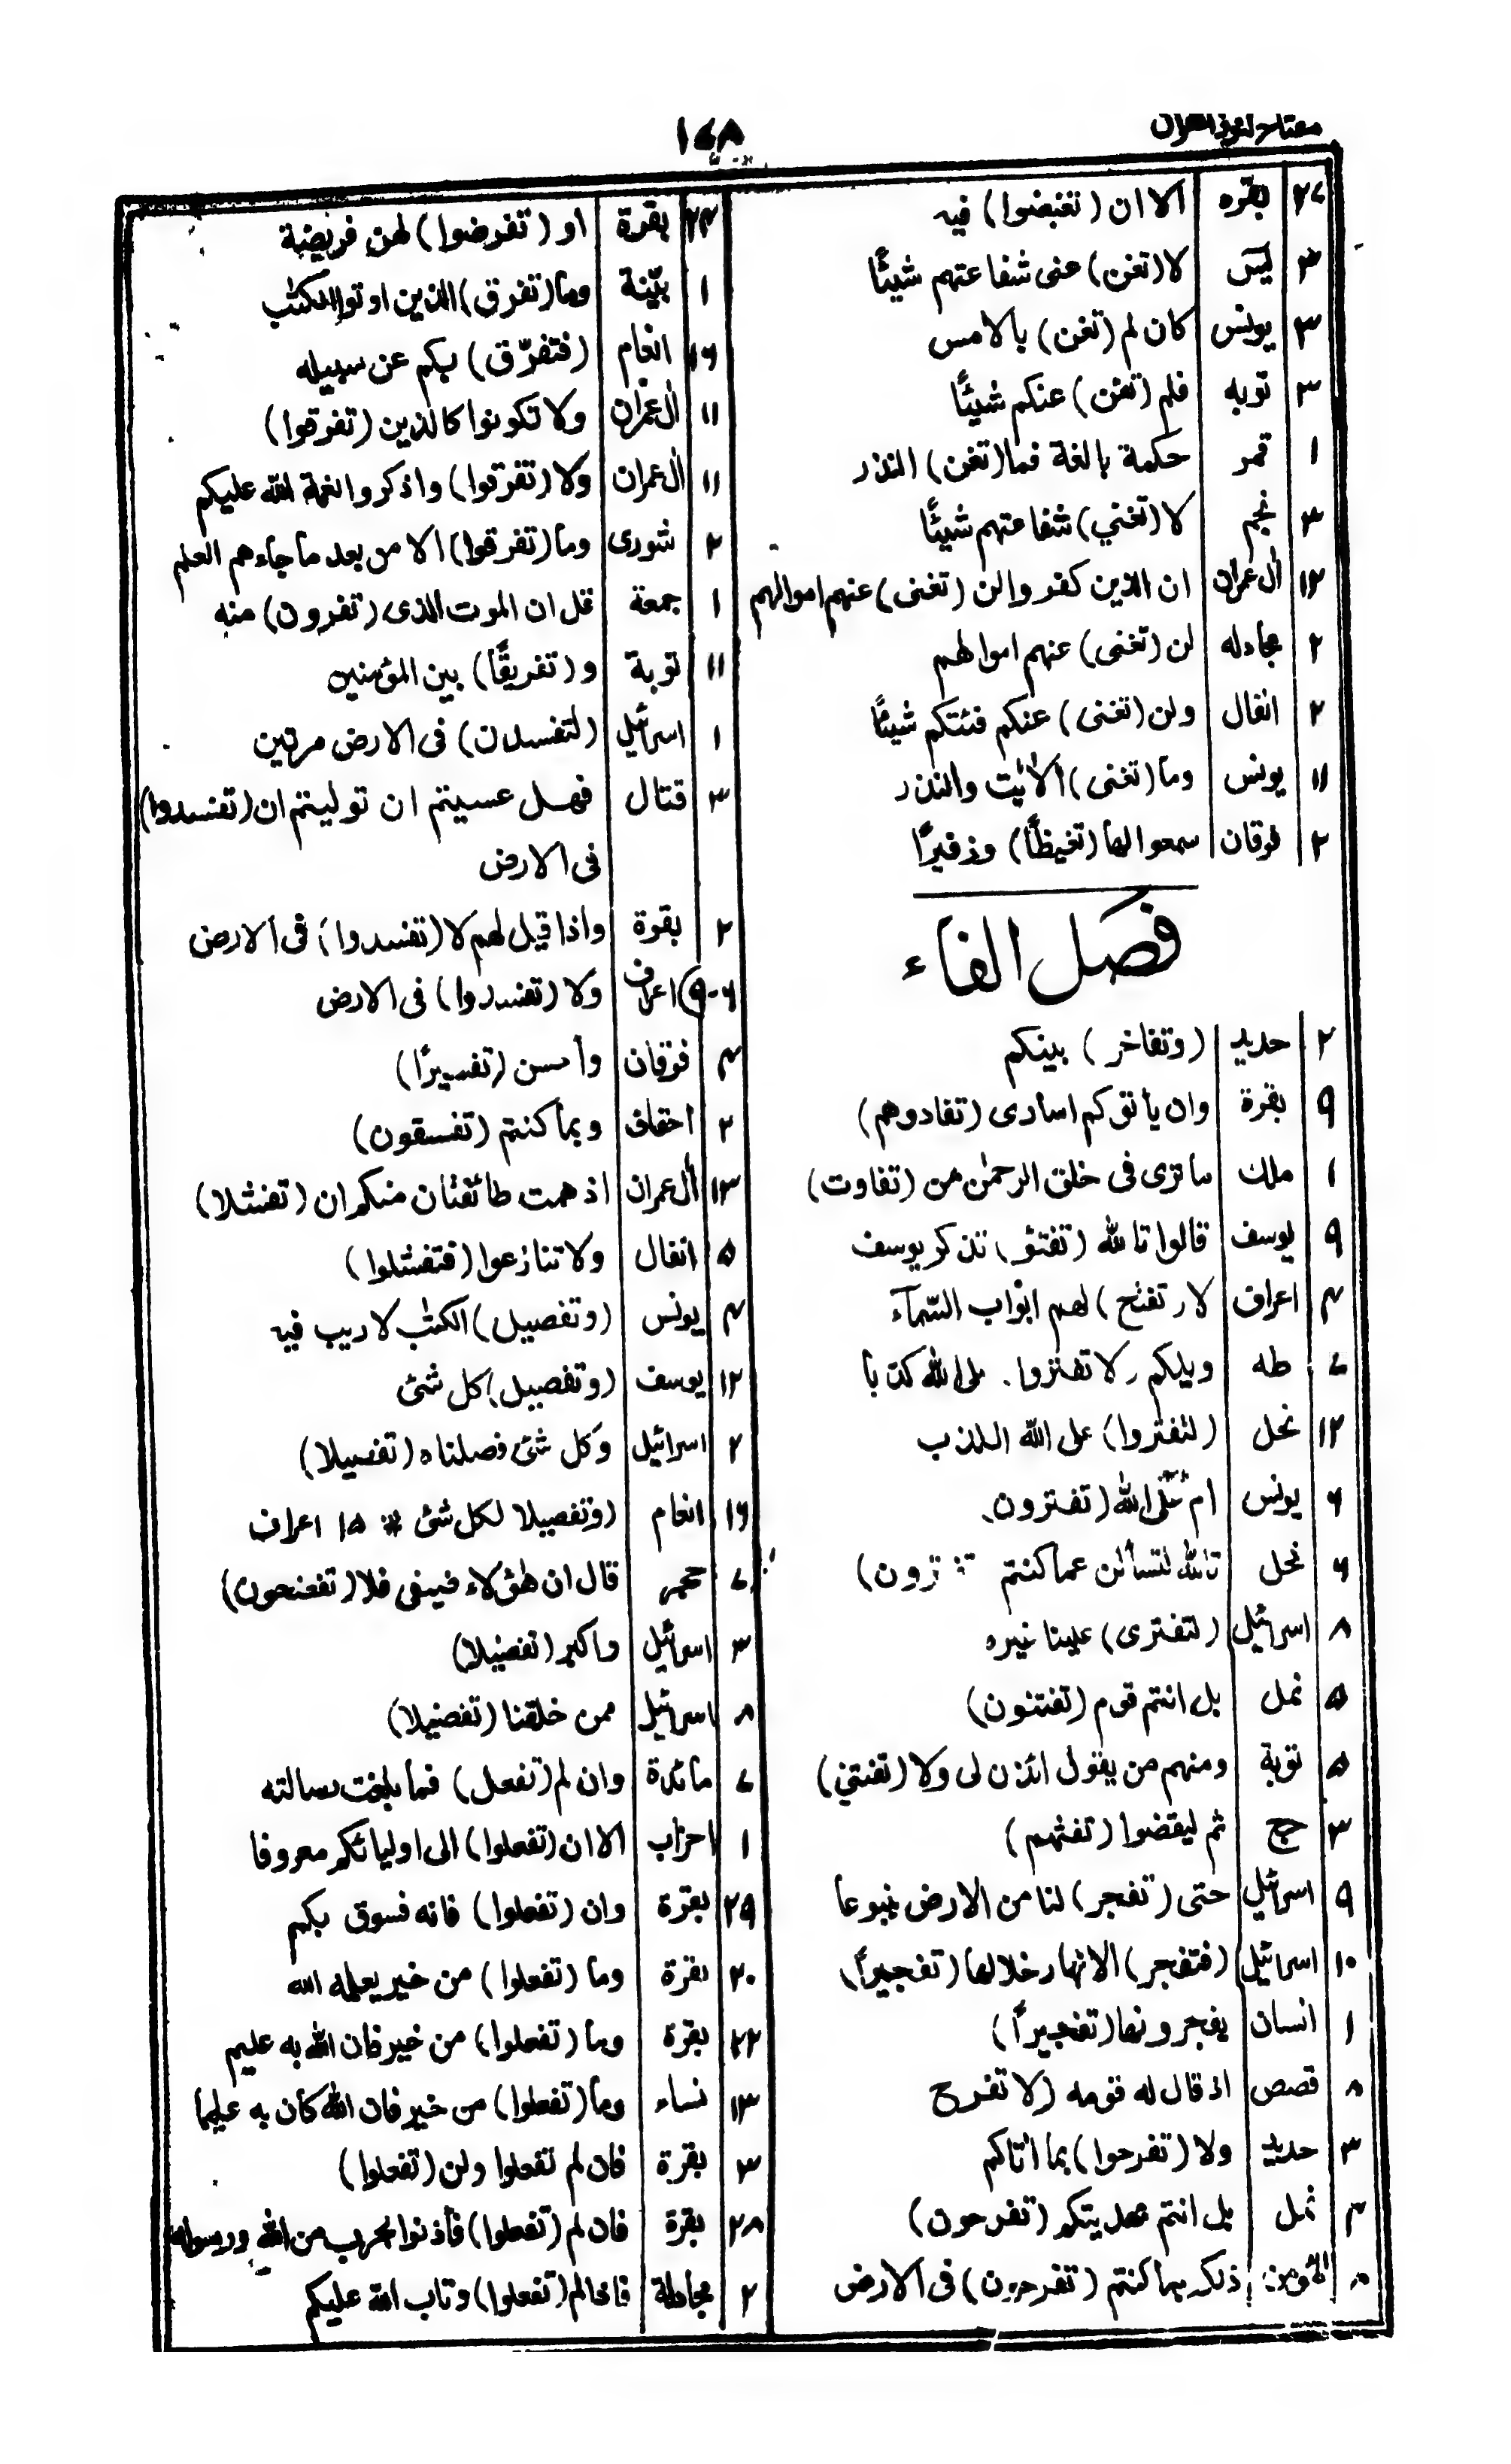 ١٤٨
٢٧ بقره الا ان (تغمضوا) فيه
٣ يٰسٓ لا (تغن) عنى شفاعتهم شيئًا
٣ يونس كان لم (تغن) بالامس
٣ توبه فلم (تغن) عنكم شيئًا
١ قمر حكمة بالغة فما (تغن) النذر
٣ نجم لا (تغني) شفاعتهم شيئًا
١٢ اٰل عمران ان الذين كفروا لن (تغنى) عنهم اموالهم
٢ مجادله لن (تغنى) عنهم اموالهم
٢ انفال ولن (تغنى) عنكم فئتكم شيئًا
١١ يونس وما (تغنى) الاٰيٰت والنذر
٢ فرقان سمعوا لها (تغيظًا) وزفيرًا
فصل الفاء
٢ حديد (وتفاخر) بينكم
٩ بقرة وان ياتوكم اسارى (تفادوهم)
١ ملك ما ترى فى خلق الرحمٰن من (تفاوت)
٩ يوسف قالوا تالله (تفتؤ) تذكر يوسف
٤ اعراف لا (تفتح) لهم ابواب السّمآء
٧ طه ويلكم لا تفتروا
١٢ نحل (لتفتروا) على الله الكذب
٦ يونس ام على الله (تفترون)
٦ نحل تالله لتسألن عما كنتم
٨ اسرائيل (لتفترى) علينا غيره
٥ نمل بل انتم قوم (تفتنون)
٥ توبة ومنهم من يقول ائذن لى ولا (تفتني)
٣ حج ثم ليقضوا (تفثهم)
٩ اسرائيل حتى (تفجر) لنا من الارض ينبوعا
١٠ اسرائيل (فتفجر) الانهار خلالها (تفجيرًا)
١ انسان يفجرونها (تفجيرًا)
٨ قصص اذ قال له قومه (لا تفرح
٣ حديد ولا (تفرحوا) بما اٰتاكم
٣ نمل بل انتم بهديتكم (تفرحون)
٨ المؤمن ذلكم بما كنتم (تفرحون) فى الارض
٢٣ بقرة او (تفرضوا) لهن فريضة
١ بيّنة وما (تفرق) الذين اوتوا الكتٰب
١٩ انعام (فتفرّق) بكم عن سبيله
١١ اٰل عمران ولا تكونوا كالذين (تفرقوا)
١١ اٰل عمران ولا (تفرقوا) واذكروا نعمة الله عليكم
٢ شورى وما (تفرقوا) الا من بعد ما جاءهم العلم
١ جمعة قل ان الموت الذى (تفرون) منه
١١ توبة و (تفريقًا) بين المؤمنين
١ اسرائيل (لتفسدن) فى الارض مرتين
٣ قتال فهل عسيتم ان توليتم ان (تفسدوا)
فى الارض
٢ بقرة واذا قيل لهم لا (تفسدوا) فى الارض
٦-٩ اعراف ولا (تفسدوا) فى الارض
٣ فرقان وأحسن (تفسيرًا)
٢ احقاف وبما كنتم (تفسقون)
١٣ اٰل عمران اذ همت طائفتان منكم ان (تفشلا)
٥ انفال ولا تنازعوا (فتفشلوا)
٤ يونس (وتفصيل) الكتٰب لا ريب فيه
١٢ يوسف (وتفصيل) كل شئ
٢ اسرائيل وكل شئ فصلناه (تفصيلا)
١٦ انعام (وتفصيلا لكل شئ * ١٥ اعراف
٧ حجر قال ان هٰؤلاء ضيفى فلا (تفضحون)
٣ اسرائيل واكبر (تفضيلا)
٨ اسرائيل ممن خلقنا (تفضيلا)
٧ مائدة وان لم (تفعل) فما بلغت رسالته
١ احزاب الا ان (تفعلوا) الى اوليائكم معروفا
٢٩ بقرة وان (تفعلوا) فانه فسوق بكم
٢٠ بقرة وما (تفعلوا) من خير يعلمه الله
٢٢ بقرة وما (تفعلوا) من خير فان الله به عليم
١٣ نساء وما (تفعلوا) من خير فان الله كان به عليما
٣ بقرة فان لم تفعلوا ولن (تفعلوا)
٢٨ بقرة فان لم (تفعلوا) فأذنوا بحرب من الله ورسوله
٢ مجادلة فاذ لم (تفعلوا) وتاب الله عليكم